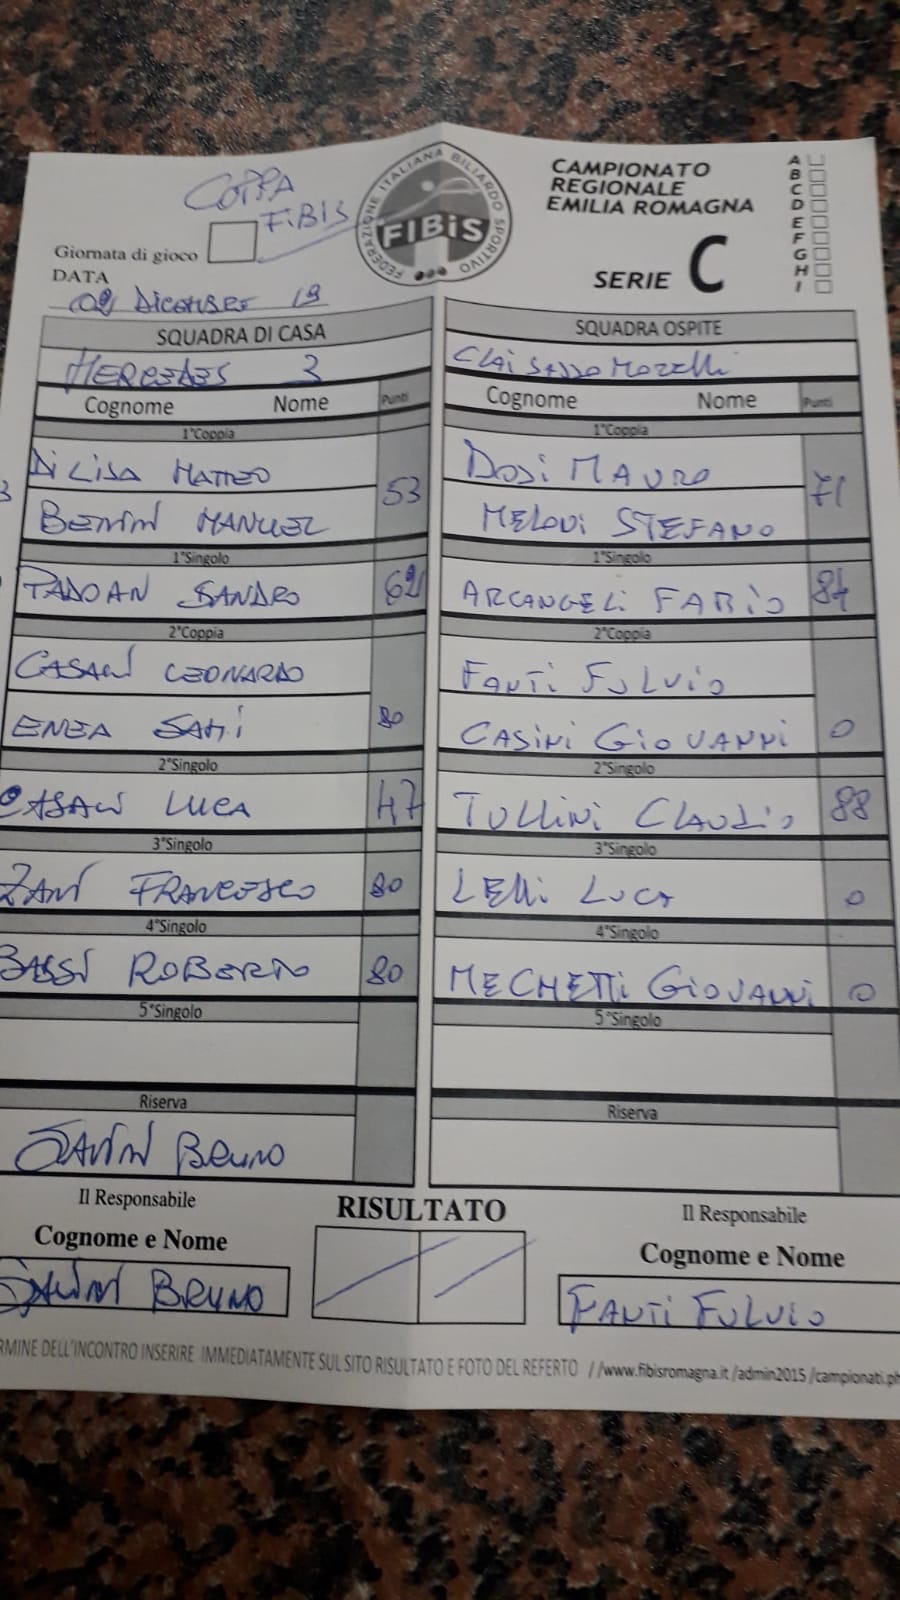 COPPA
FIBIS
FEDERAZIONE ITALIANA BILIARDO SPORTIVO
FIBiS
CAMPIONATO
REGIONALE
EMILIA ROMAGNA
SERIE C
A
B
C
D
E
F
G
H
I
Giornata di gioco
DATA
09 DICEMBRE 19
SQUADRA DI CASA
HERCULES 3
Cognome Nome Punti
1°Coppia
DI LISA MATTEO
BENINI MANUEL
53
1°Singolo
PADOAN SANDRO 62
2°Coppia
CASALI LEONARDO
ENEA SAMI 80
2°Singolo
CASALI LUCA 47
3°Singolo
ZANI FRANCESCO 80
4°Singolo
BASSI ROBERTO 80
5°Singolo
Riserva
SAVINI BRUNO
Il Responsabile
Cognome e Nome
SAVINI BRUNO
SQUADRA OSPITE
Clai SASSO MORELLI
Cognome Nome Punti
1°Coppia
DOSI MAURO
MELODI STEFANO
71
1°Singolo
ARCANGELI FABIO 84
2°Coppia
FANTI FULVIO
CASINI GIOVANNI 0
2°Singolo
TULLINI CLAUDIO 88
3°Singolo
LELLI LUCA 0
4°Singolo
MECHETTI GIOVANNI 0
5°Singolo
Riserva
RISULTATO
Il Responsabile
Cognome e Nome
FANTI FULVIO
RMINE DELL'INCONTRO INSERIRE IMMEDIATAMENTE SUL SITO RISULTATO E FOTO DEL REFERTO //www.fibisromagna.it/admin2015/campionati.ph